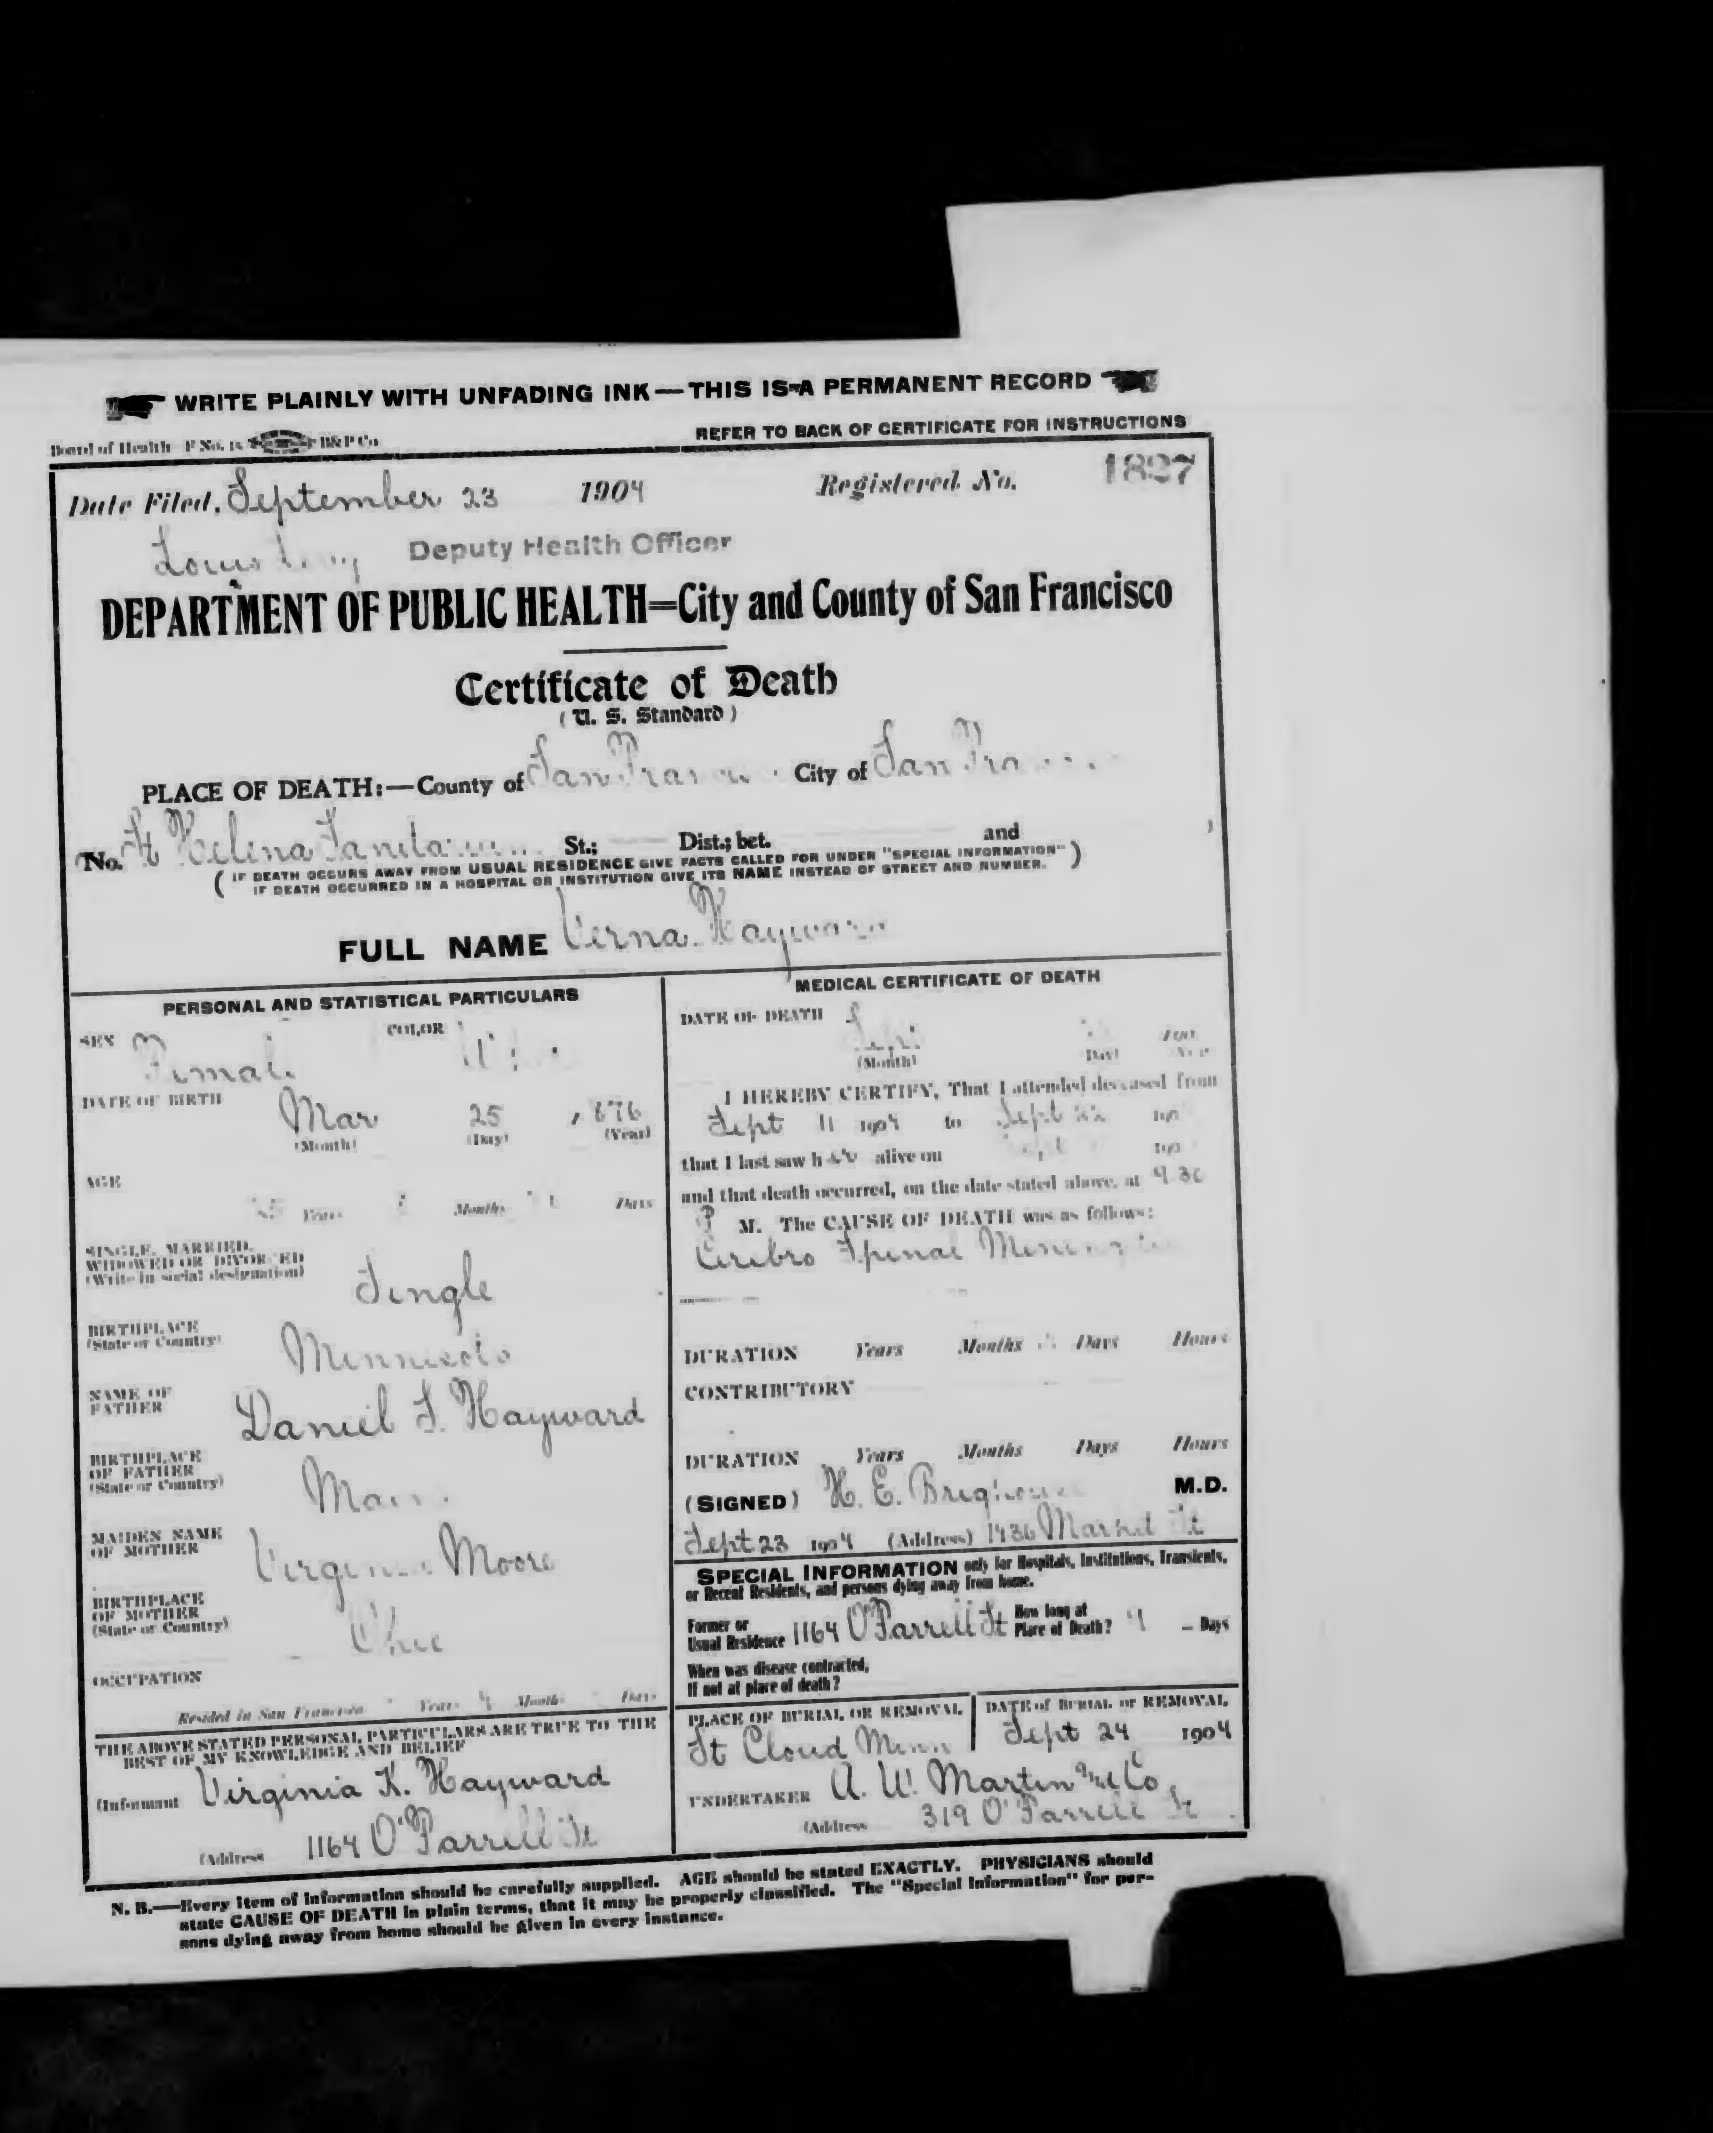 WRITE PLAINLY WITH UNFADING INK — THIS IS A PERMANENT RECORD
Board of Health F No. B&P Co
REFER TO BACK OF CERTIFICATE FOR INSTRUCTIONS
Date Filed, September 23 1904 Registered No. 1827
Louis Deputy Health Officer
DEPARTMENT OF PUBLIC HEALTH=City and County of San Francisco
Certificate of Death
(U. S. Standard)
PLACE OF DEATH:—County of San City of San
No. St Helena St.; Dist.; bet. and
(IF DEATH OCCURS AWAY FROM USUAL RESIDENCE GIVE FACTS CALLED FOR UNDER "SPECIAL INFORMATION"
IF DEATH OCCURRED IN A HOSPITAL OR INSTITUTION GIVE ITS NAME INSTEAD OF STREET AND NUMBER.)
FULL NAME Verna Hayward
PERSONAL AND STATISTICAL PARTICULARS
SEX Female COLOR
DATE OF BIRTH Mar 25
(Month) (Day) (Year)
AGE
Years Months Days
SINGLE, MARRIED,
WIDOWED OR DIVORCED
(Write in social designation) Single
BIRTHPLACE
(State or Country) Minnesota
NAME OF
FATHER Daniel F. Hayward
BIRTHPLACE
OF FATHER
(State or Country)
MAIDEN NAME
OF MOTHER Virginia Moore
BIRTHPLACE
OF MOTHER
(State or Country) Ohio
OCCUPATION
Resided in San Francisco Years Months Days
THE ABOVE STATED PERSONAL PARTICULARS ARE TRUE TO THE
BEST OF MY KNOWLEDGE AND BELIEF
(Informant Virginia K. Hayward
(Address 1164 O'Farrell St
MEDICAL CERTIFICATE OF DEATH
DATE OF DEATH Sept
(Month) (Day)
I HEREBY CERTIFY, That I attended deceased from
Sept 11 1904 to Sept 22
that I last saw her alive on
and that death occurred, on the date stated above, at 9.30
P M. The CAUSE OF DEATH was as follows:
Cerebro Spinal Meningitis
DURATION Years Months Days Hours
CONTRIBUTORY
DURATION Years Months Days Hours
(SIGNED) H. E. M.D.
Sept 23 1904 (Address) 1436 Market St
SPECIAL INFORMATION only for Hospitals, Institutions, Transients,
or Recent Residents, and persons dying away from home.
Former or
Usual Residence 1164 O'Farrell St How long at
Place of Death? Days
When was disease contracted,
If not at place of death?
PLACE OF BURIAL OR REMOVAL
St Cloud Minn
DATE of BURIAL or REMOVAL
Sept 24 1904
UNDERTAKER A. W. Martin Co
(Address 319 O'Farrell St
N. B.—Every item of information should be carefully supplied. AGE should be stated EXACTLY. PHYSICIANS should
state CAUSE OF DEATH in plain terms, that it may be properly classified. The "Special Information" for per-
sons dying away from home should be given in every instance.